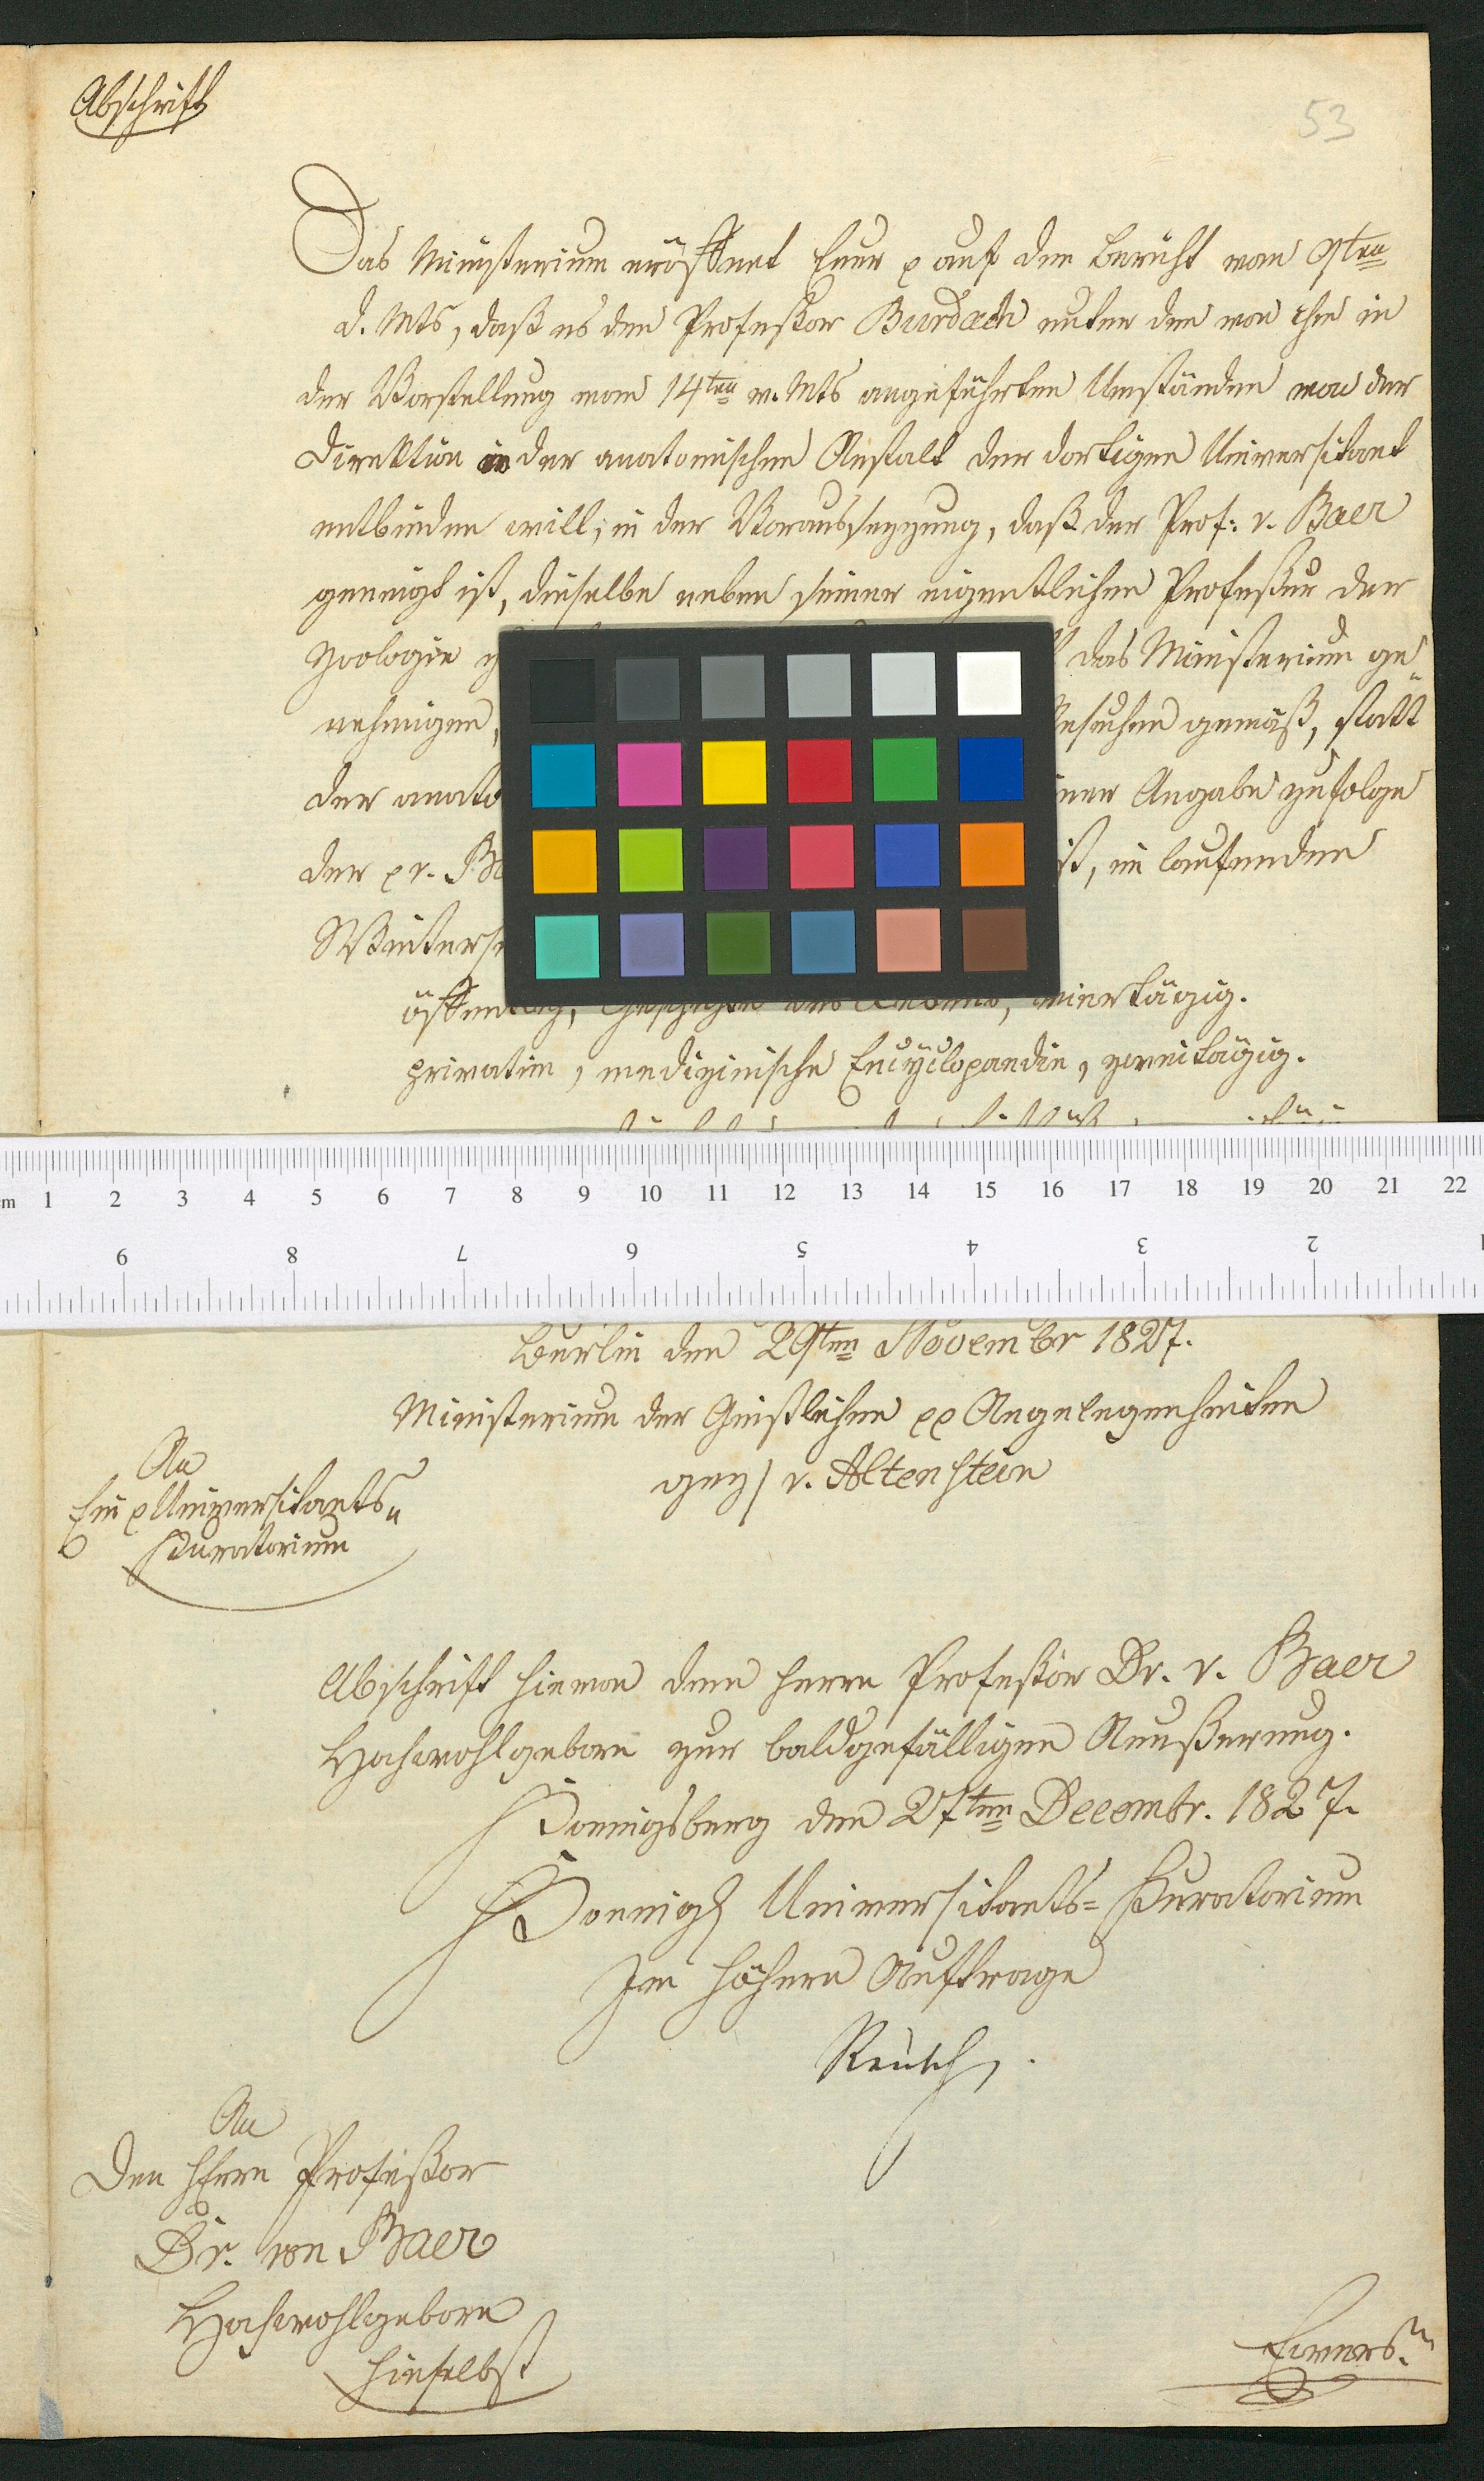 Abschrift
53
Das Ministerium eröffnet Euer p auf den Bericht vom 9ten
d. Mts, daß es den Professor Burdach unter den von ihm in
der Vorstellung vom 14ten v. Mts angeführten Umständen von der
Direktion der anatomischen Anstalt der dortigen Universitaet
entbinden will, in der Voraussezzung, daß der Prof: v. Baer
geneigt ist, dieselbe neben seiner eigentlichen Professur der
Zoologie das Ministerium ge
nehmigen, gemäß, statt
der Angabe zufolge
der p v. ist, im laufenden
öffentlich, Geschichte des Lebens, viertägig.
privatim, medizinische Encyclopaedie, zweitägig.
cm 1 2 3 4 5 6 7 8 9 10 11 12 13 14 15 16 17 18 19 20 21 22
9 8 7 6 5 4 3 2
Berlin den 29ten Novembr 1827.
Ministerium der Geistlichen pp Angelegenheiten
gez/ v. Altenstein
An
Ein p Universitaets
Kuratorium
Abschrift hievon dem Herrn Professor Dr. v. Baer
Hochwohlgeborn zur baldgefälligen Aeußerung.
Koenigsberg den 27ten Decembr. 1827.
Koenigl Universitaets=Kuratorium
Im höhern Auftrage
Reusch.
An
Den Herrn Professor
Dr. von Baer
Hochwohlgeborn
hieselbst